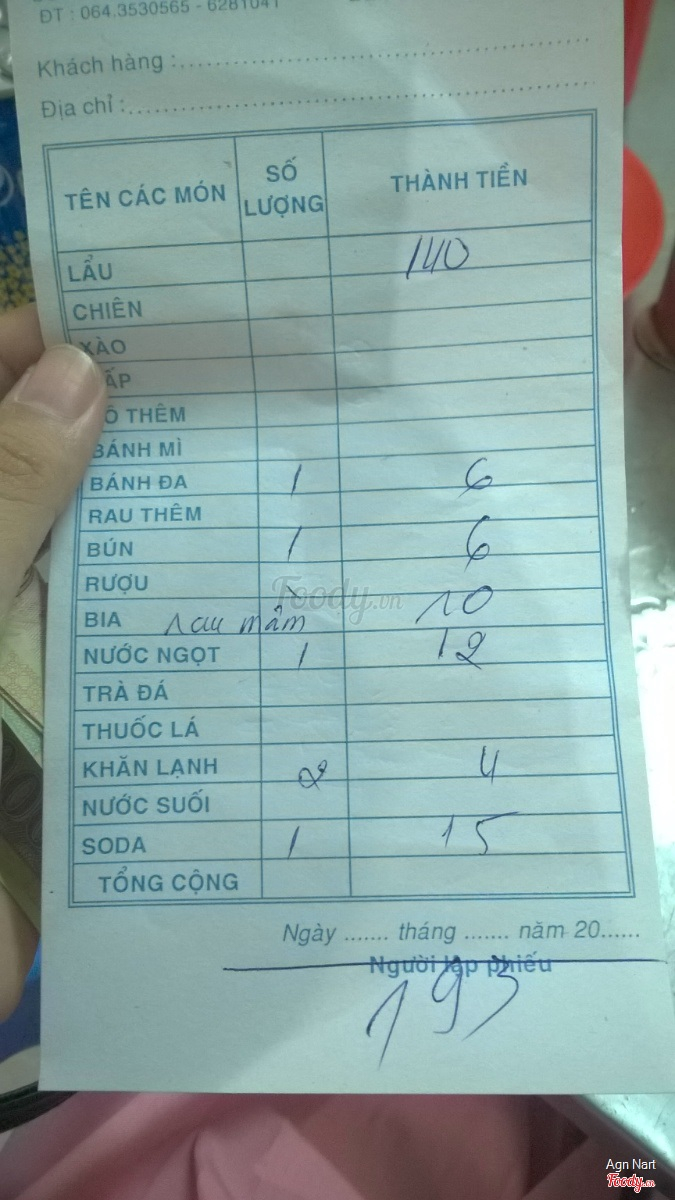 ĐT : 064.3530565 - 6281041
Khách hàng :
Địa chỉ :
TÊN CÁC MÓN SỐ LƯỢNG THÀNH TIỀN
LẨU 140
CHIÊN
XÀO
ẤP
THÊM
BÁNH MÌ
BÁNH ĐA 1 6
RAU THÊM
BÚN 1 6
RƯỢU
BIA rau mầm 10
NƯỚC NGỌT 1 12
TRÀ ĐÁ
THUỐC LÁ
KHĂN LẠNH 2 4
NƯỚC SUỐI
SODA 1 15
TỔNG CỘNG
Ngày ....... tháng ....... năm 20......
Người lập phiếu
193
Foody.vn
Agn Nart
Foody.vn